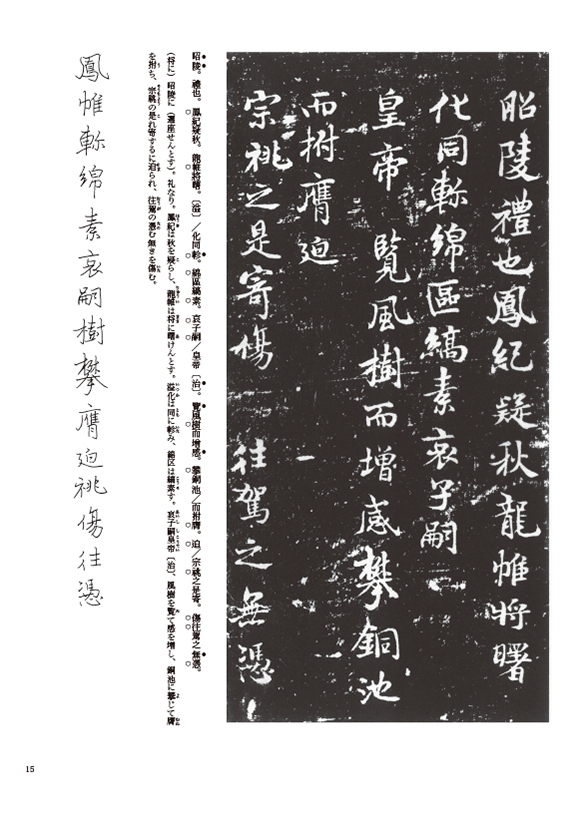 昭陵禮也鳳紀疑秋龍帷将曙
化同軫綿區縞素哀子嗣
皇帝覧風樹而増感攀銅池
而拊膺迫
宗祧之是寄傷 往駕之無憑
昭陵。禮也。鳳紀疑秋。龍帷將曙。〔溢〕／化同軫。綿區縞素。哀子嗣／皇帝〔治〕。覽風樹而增感。攀銅池／而拊膺。迫／宗祧之是寄。傷往駕之無憑。
（将に）昭陵に（遷座せんとす）。礼なり。鳳紀は秋を疑らし、龍帷は将に曙けんとす。溢化は同に軫み、綿区は縞素す。哀子嗣皇帝〔治〕、風樹を覧て感を増し、銅池に攀じて膺
を拊ち、宗祧の是れ寄するに迫られ、往駕の憑む無きを傷む。
鳳帷軫綿素哀嗣樹攀膺迫祧傷往憑
15